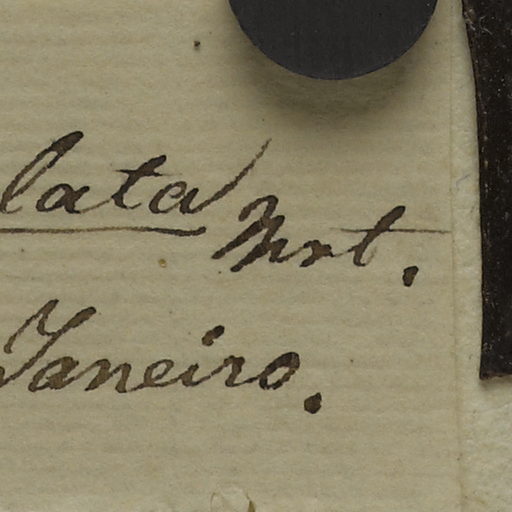 lata Mrt.
Janeiro.